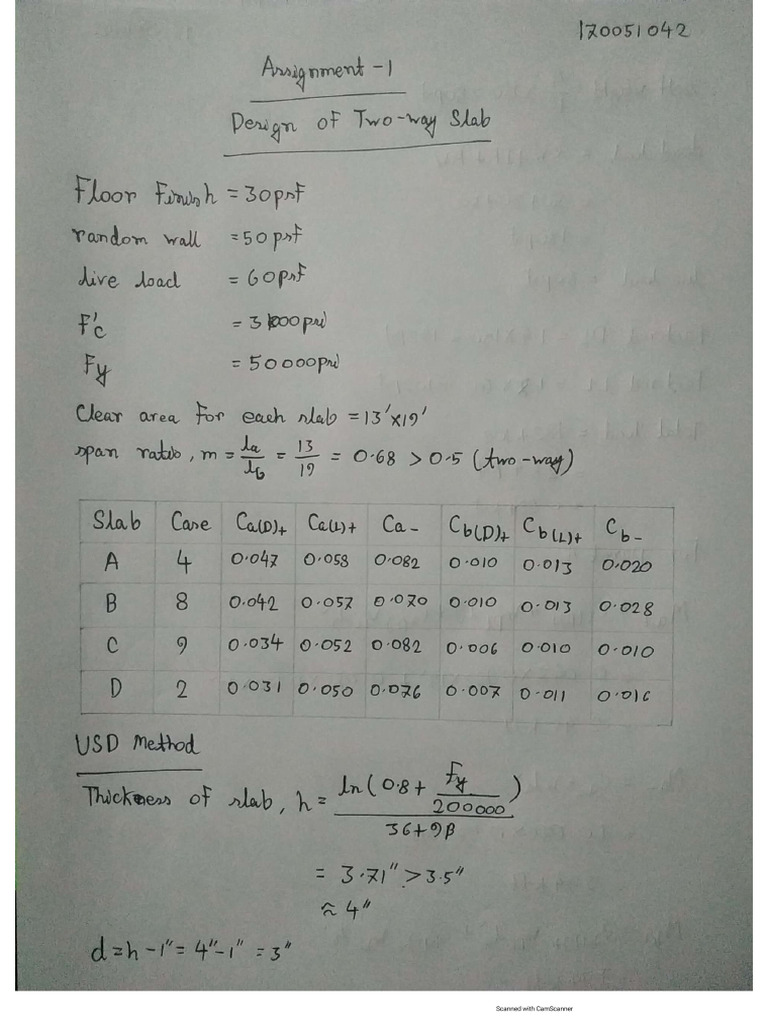 170051042
Assignment-1
Design of Two-way Slab
Floor Finish = 30psf
random wall = 50 psf
live load = 60psf
F'c = 3000psi
Fy = 50000psi
Clear area for each slab = 13' x 19'
span ratio, m = la/lb = 13/19 = 0.68 > 0.5 (two-way)
Slab Case Ca(D)+ Ca(L)+ Ca- Cb(D)+ Cb(L)+ Cb-
A 4 0.047 0.058 0.082 0.010 0.013 0.020
B 8 0.042 0.057 0.070 0.010 0.013 0.028
C 9 0.034 0.052 0.082 0.006 0.010 0.010
D 2 0.031 0.050 0.076 0.007 0.011 0.016
USD Method
Thickness of slab, h = ln(0.8 + Fy/200000) / 36+9β
= 3.71" > 3.5"
≈ 4"
d = h - 1" = 4" - 1" = 3"
Scanned with CamScanner